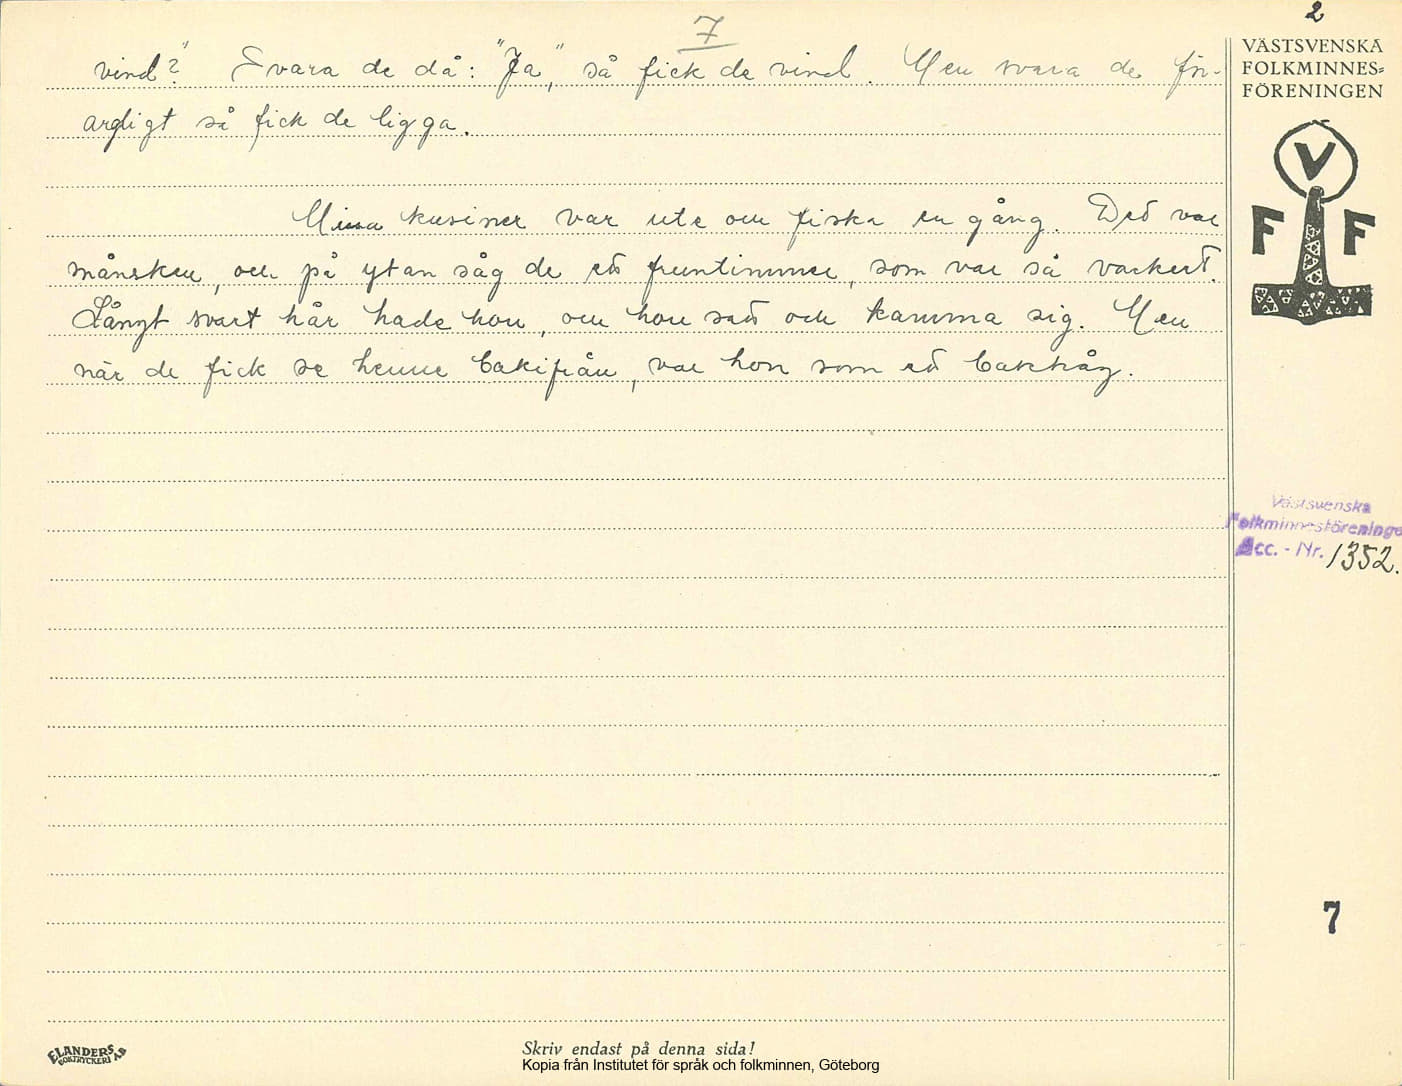 7
2
vind?" Svara de då: "Ja", så fick de vind. Men svara de för-
argligt så fick de ligga.
Mina kusiner var ute och fiska en gång. Det var
månsken, och på ytan såg de ett fruntimmer, som var så vackert.
Långt svart hår hade hon, och hon satt och kamma sig. Men
när de fick se henne bakifrån, var hon som ett baktråg.
VÄSTSVENSKA
FOLKMINNES=
FÖRENINGEN
V
F F
Västsvenska
Folkminnesföreninge
Acc. - Nr. 1352.
7
ELANDERS
BOKTRYCKERI AB
Skriv endast på denna sida!
Kopia från Institutet för språk och folkminnen, Göteborg